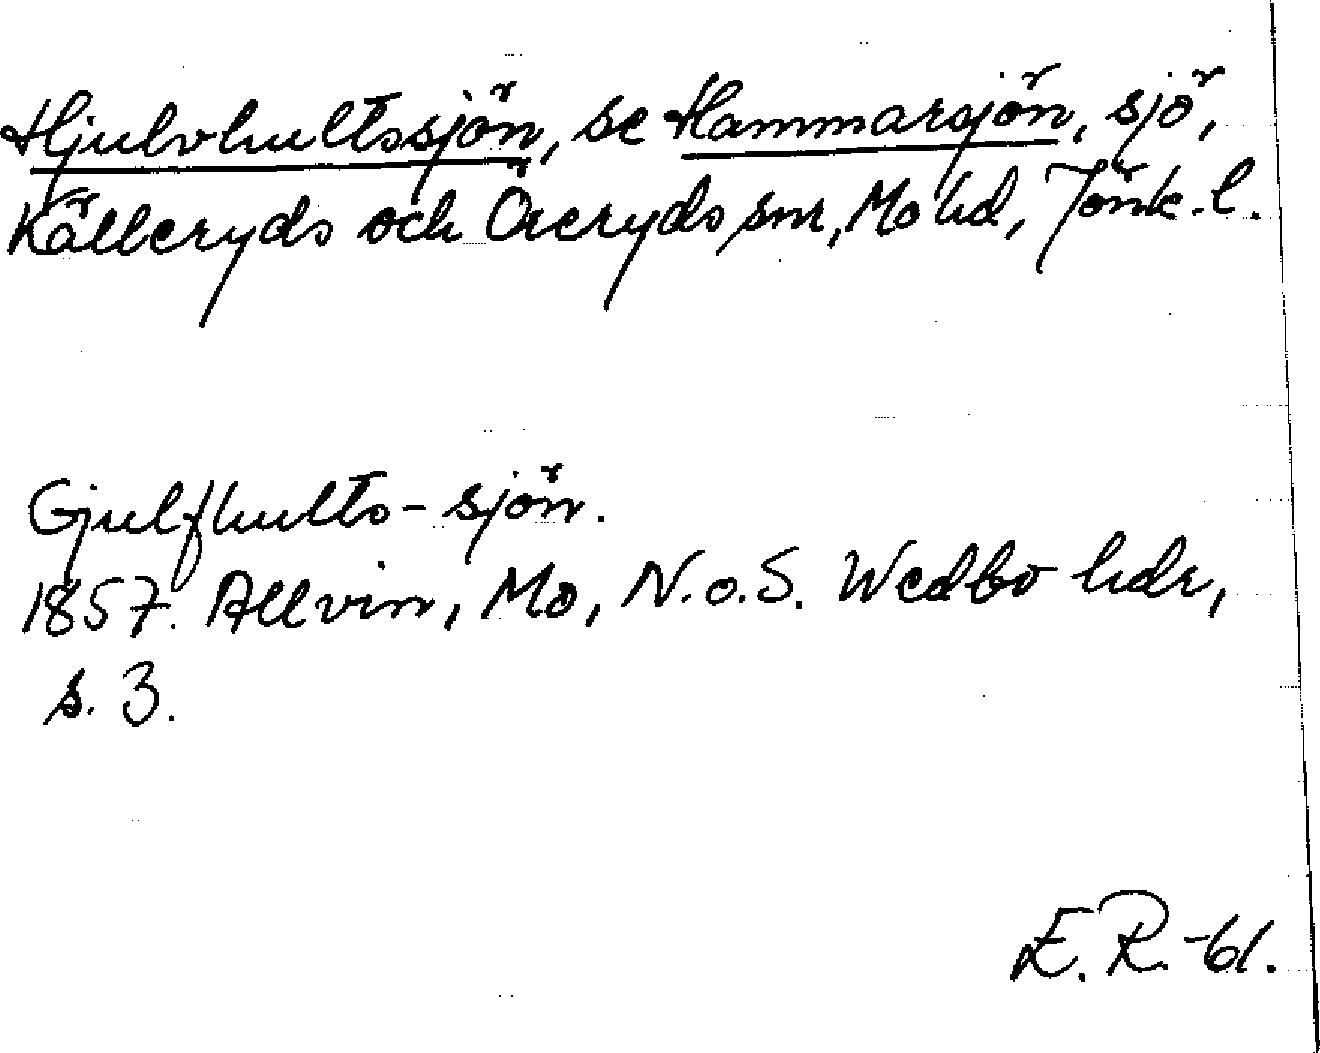 Hjulvhultssjön, se Hammarsjön, sjö,
Källeryds och Öreryds snr, Mo hd, Jönk. l.
Gjulfhults-sjön.
1857. Allvin, Mo, N. o. S. Wedbo hdr,
s. 3.
E. R. -61.